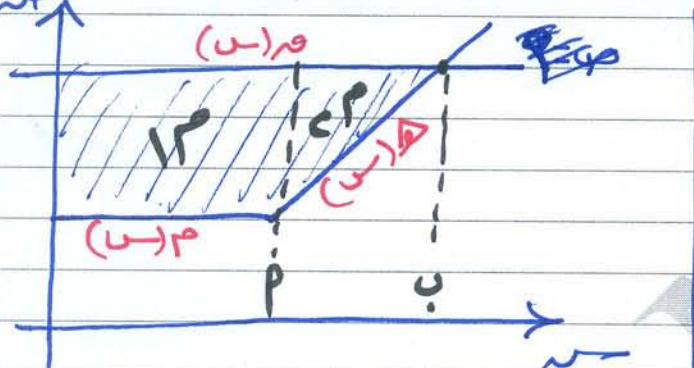 ص
ق(س)
م١
م٢
هـ(س)
م(س)
ب
س